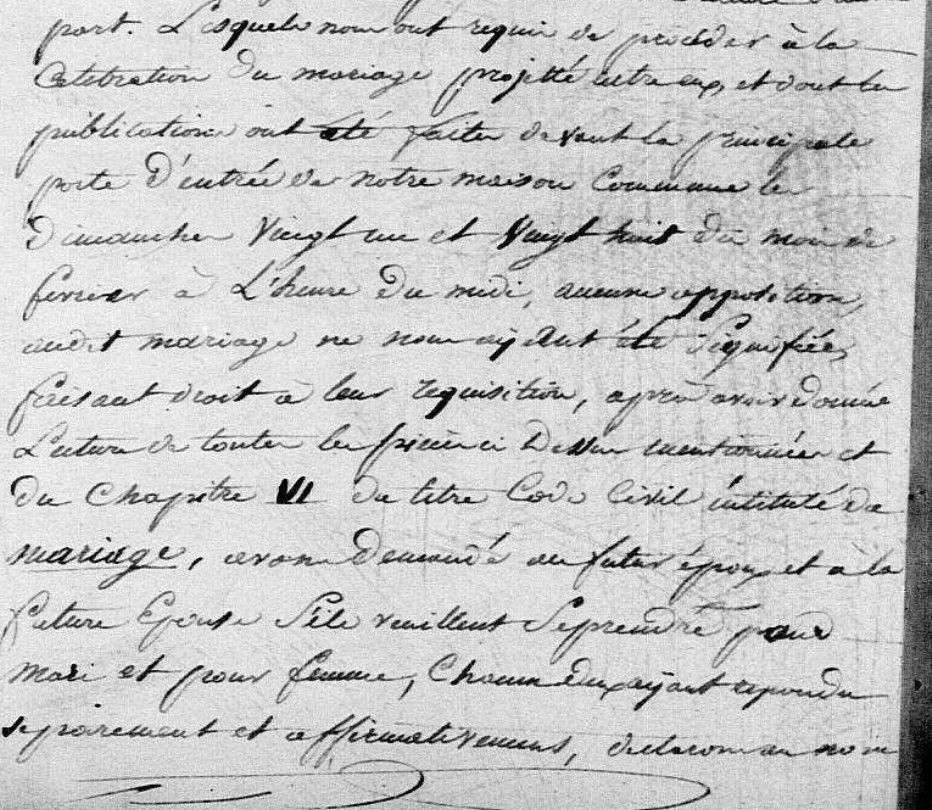 part. Lesquels nous ont requis de procéder à la
Celebration du mariage projetté entre eux, et dont les
publications ont été faites devant la principale
porte d'entrée de notre maison Commune les
Dimanches Vingt un et Vingt huit du mois de
fevrier à L'heure du midi, aucune opposition,
audit mariage ne nous ayant été Signifiée,
faisant droit à leur requisition, après avoir donné
Lecture de toutes les pieces ci Dessus mentionnées et
du Chapitre VI du titre Code Civil intitulé du
mariage, avons Demandé au futur époux et à la
future Epouse S'ils veuillent Se prendre pour
mari et pour femme, Chacun d'eux ayant repondu
separement et affirmativement, declarons au nom